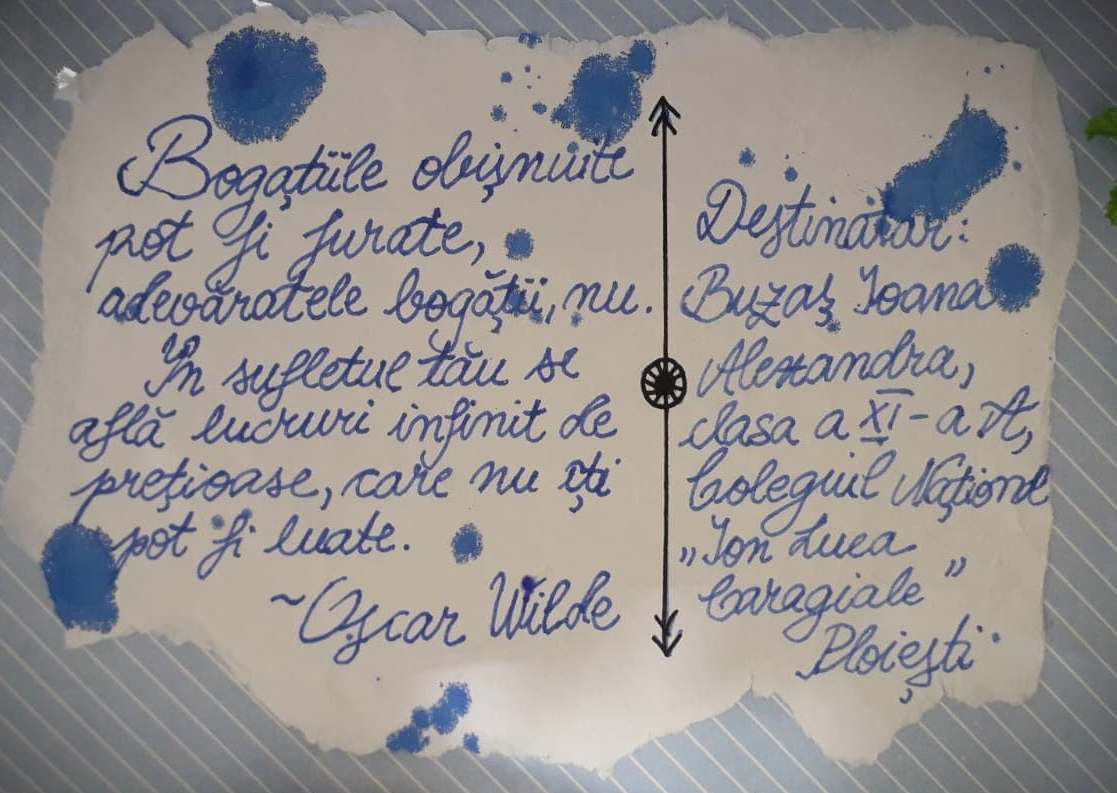 Bogațiile obișnuite
pot fi furate,
adevăratele bogății, nu.
În sufletul tău se
află lucruri infinit de
prețioase, care nu îți
pot fi luate.
~Oscar Wilde
Destinatar:
Buzaș Ioana
Alexandra,
clasa a XI-a A,
Colegiul Național
„Ion Luca
Caragiale”
Ploiești